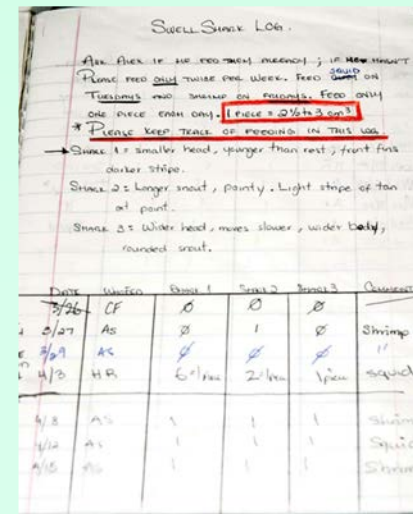 SWELL SHARK LOG.
ASK ALEX IF HE FED THEM ALREADY; IF HE HASN'T
PLEASE FEED ONLY TWICE PER WEEK. FEED SQUID ON
TUESDAYS AND SHRIMP ON FRIDAYS. FEED ONLY
ONE PIECE EACH DAY. 1 PIECE = 2½ to 3 cm³
* PLEASE KEEP TRACK OF FEEDING IN THIS LOG
→ SHARK 1 = smaller head, younger than rest; front fins
darker stripe.
SHARK 2 = Longer snout, pointy. Light stripe of tan
at point.
SHARK 3 = Wider head, moves slower, wider body,
rounded snout.
DATE WHO FED SHARK 1 SHARK 2 SHARK 3 COMMENTS
3/26 CF Ø Ø Ø
3/27 AS Ø 1 Ø Shrimp
3/29 AS Ø Ø Ø "
4/3 HR 2 1 piece squid
4/8 AS 1 1 1 Shrim
4/12 AS 1 1 1 Squid
AS 1 1 1 Shrim